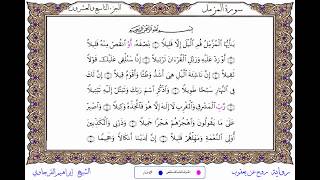 سورة المزمل
الجزء التاسع والعشرون
بسم الله الرحمن الرحيم
يَٰٓأَيُّهَا ٱلْمُزَّمِّلُ قُمِ ٱلَّيْلَ إِلَّا قَلِيلًا نِّصْفَهُۥٓ أَوُ ٱنقُصْ مِنْهُ قَلِيلًا
أَوْ زِدْ عَلَيْهِ وَرَتِّلِ ٱلْقُرْءَانَ تَرْتِيلًا إِنَّا سَنُلْقِي عَلَيْكَ قَوْلًا
ثَقِيلًا إِنَّ نَاشِئَةَ ٱلَّيْلِ هِيَ أَشَدُّ وَطْـًٔا وَأَقْوَمُ قِيلًا إِنَّ لَكَ
فِي ٱلنَّهَارِ سَبْحًا طَوِيلًا وَٱذْكُرِ ٱسْمَ رَبِّكَ وَتَبَتَّلْ إِلَيْهِ تَبْتِيلًا
رَّبِّ ٱلْمَشْرِقِ وَٱلْمَغْرِبِ لَآ إِلَٰهَ إِلَّا هُوَ فَٱتَّخِذْهُ وَكِيلًا وَٱصْبِرْ
عَلَىٰ مَا يَقُولُونَ وَٱهْجُرْهُمْ هَجْرًا جَمِيلًا وَذَرْنِي وَٱلْمُكَذِّبِينَ
أُوْلِي ٱلنَّعْمَةِ وَمَهِّلْهُمْ قَلِيلًا إِنَّ لَدَيْنَآ أَنكَالًا وَجَحِيمًا
رواية روح عن يعقوب
الشيخ إبراهيم